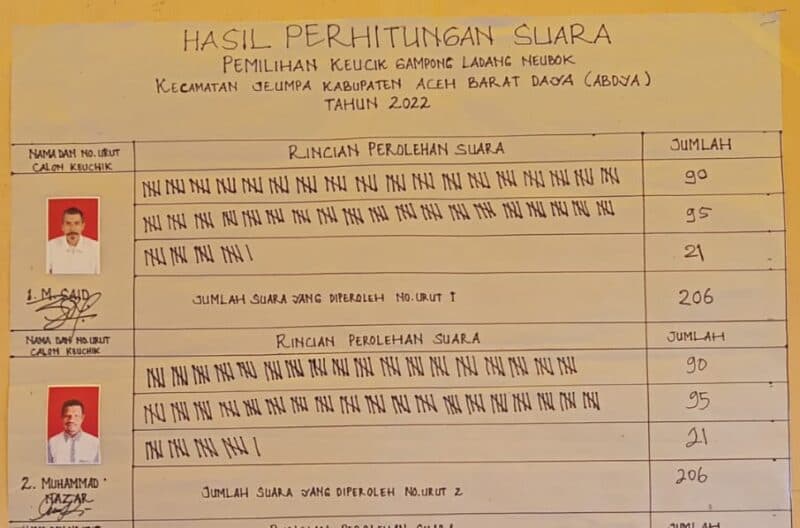 HASIL PERHITUNGAN SUARA
PEMILIHAN KEUCIK GAMPONG LADANG NEUBOK
KECAMATAN JEUMPA KABUPATEN ACEH BARAT DAYA (ABDYA)
TAHUN 2022
NAMA DAN NO. URUT CALON KEUCHIK
RINCIAN PEROLEHAN SUARA
JUMLAH
90
95
21
1. M. SAID
JUMLAH SUARA YANG DIPEROLEH NO. URUT 1
206
NAMA DAN NO. URUT CALON KEUCHIK
RINCIAN PEROLEHAN SUARA
JUMLAH
90
95
21
2. MUHAMMAD NAZAR
JUMLAH SUARA YANG DIPEROLEH NO. URUT 2
206
RINCIAN PEROLEHAN SUARA
JUMLAH